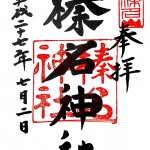 奉拝
榛名神社
榛名
神社
平成二十七年七月二日